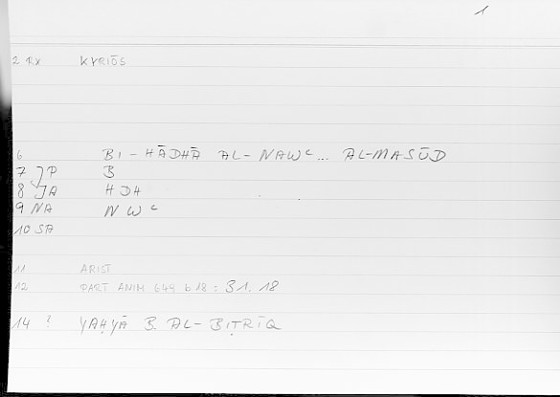 1
2 RX KYRIŌS
6 BI-HĀDHĀ AL-NAWʿ... AL-MASŪD
7 P B
8 JA HDH
9 NA NWʿ
10 SA
11 ARIST
12 PART ANIM 649 b 18 = 31.18
14 ? YAḤYĀ B. AL-BIṬRĪQ